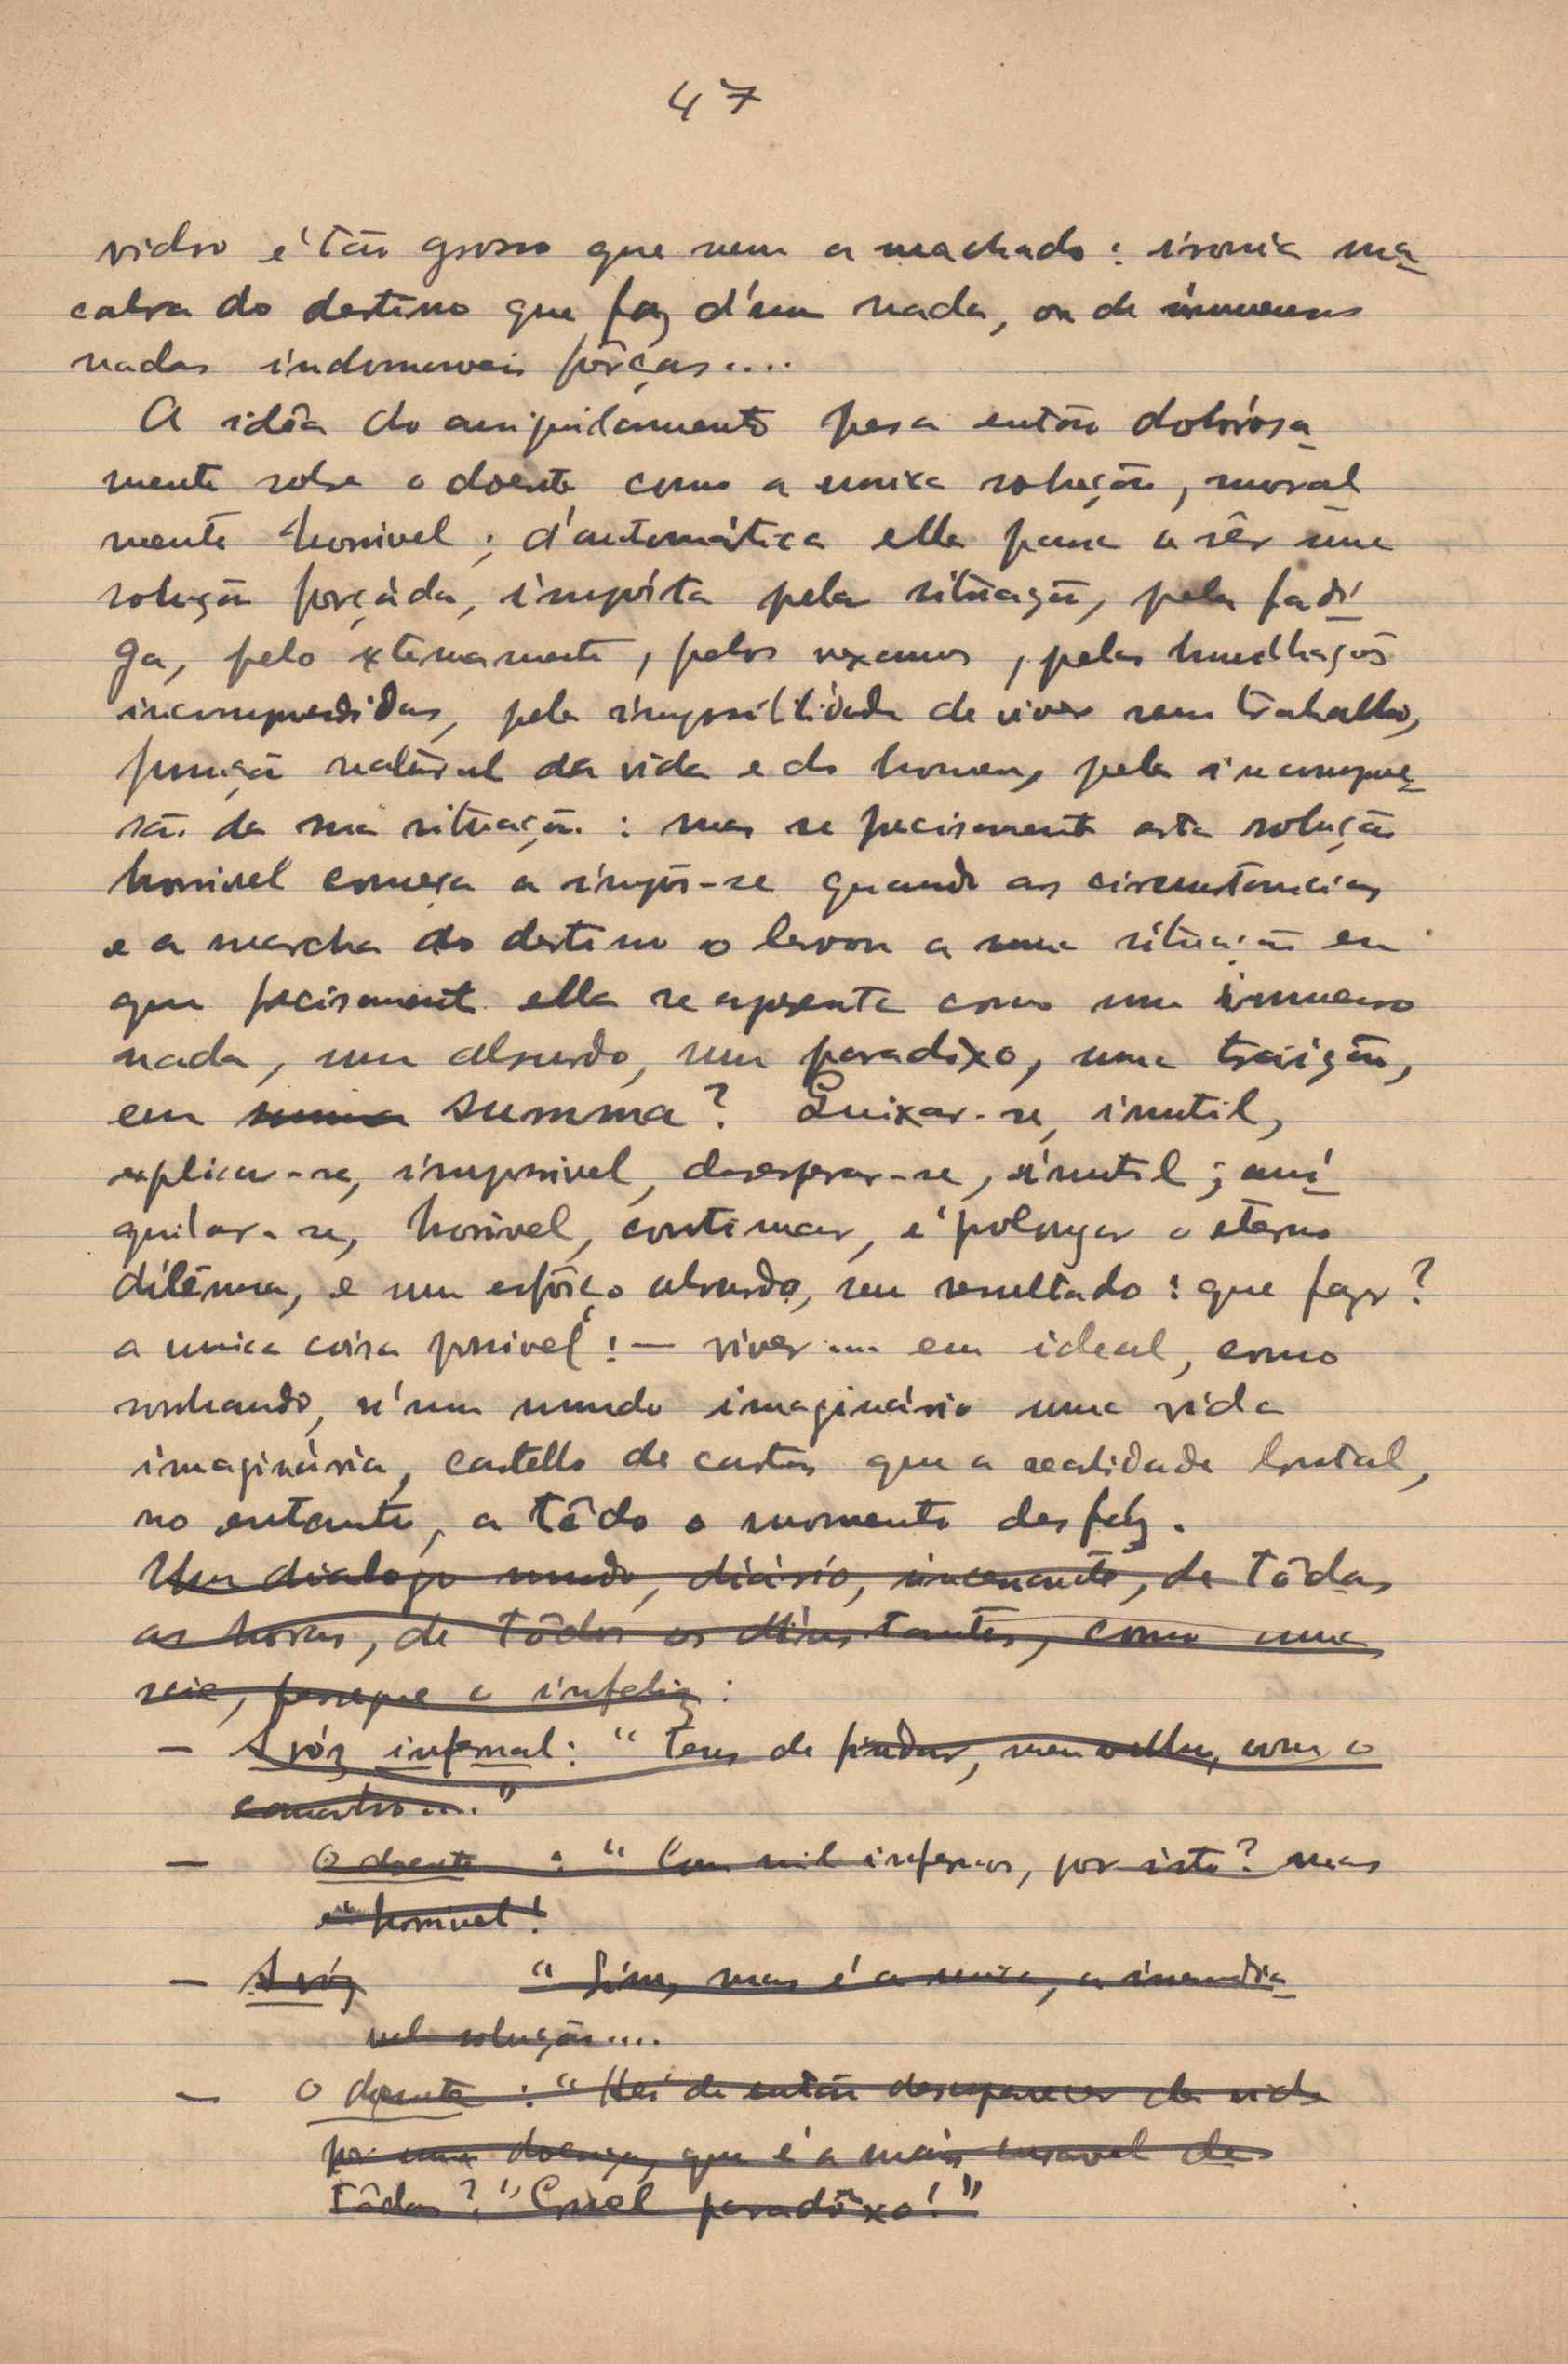 47
vidro é tão grosso que nem a machado: ironia ma
cabra do destino que faz d'um nada, ou de immensos
nadas indomaveis fôrças....
A idêa do aniquilamento pesa então dolórosa
mente sobre o doente como a unica solução, moral
mente horrivel; d'automática ella passa a sêr uma
solução forçáda, impósta pela situação, pela fadi
ga, pelo externamente, pelos vexames, pelas humilhações
incomprendidas, pela impossibilidade de viver sem trabalho,
função natural da vida e do homem, pela incompre
são da sua situação: mas se precisamente esta solução
horrivel começa a impôr-se quando as circunstancias
e a marcha do destino o levou a uma situação em
que precisament ella se apresenta como um immenso
nada, um absurdo, um paradoxo, uma traição,
em summa summa? Queixar-se, inutil,
explicar-se, impossivel, desesperar-se, inutil; ani
quilar-se, horrivel, continuar, é prolongar o eterno
dilêmma, e um esfôrço absurdo, sem resultado: que fazer?
a unica coisa possivel: — viver.... em ideal, como
sonhando, n'um mundo imaginário uma vida
imaginária, castello de cartas que a realidade brutal,
no entanto, a tôdo o momento desfaz.
Um dialogo mudo, diário, incessante, de tôdas
as horas, de tôdos os instantes, como uma
persegue o infeliz:
— A vóz infernal: "Tens de findar, meu velho, com o
canastro...."
— O doente: "Com mil infernos, por isto? mas
é horrivel!
— A vóz "Sim, mas é a unica, a inadia
vel solução....
— O doente: "Hei de então desaparecer da vida
por uma doença, que é a mais curavel de
tôdas?" Cruel paradôxo!"